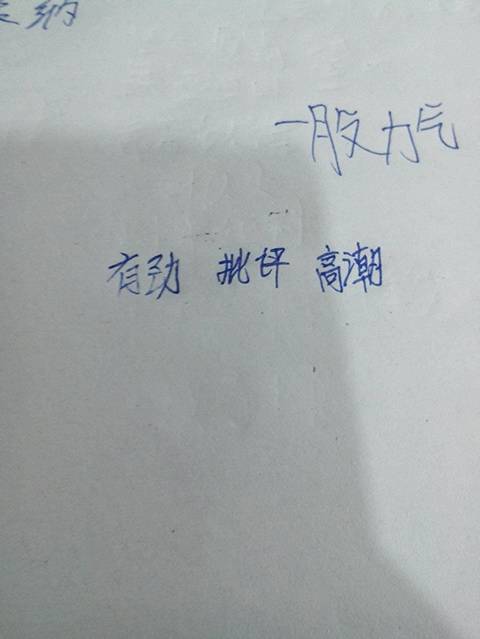 纳
一股力气
有劲 批评 高潮